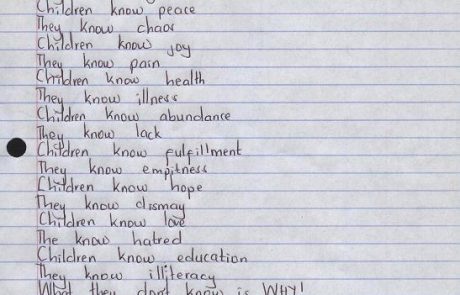 Children know peace
They know chaos
Children know joy
They know pain
Children know health
They know illness
Children know abundance
They know lack
Children know fulfillment
They know empitness
Children know hope
They know dismay
Children know love
The know hatred
Children know education
They know illiteracy
What they don't know is WHY!